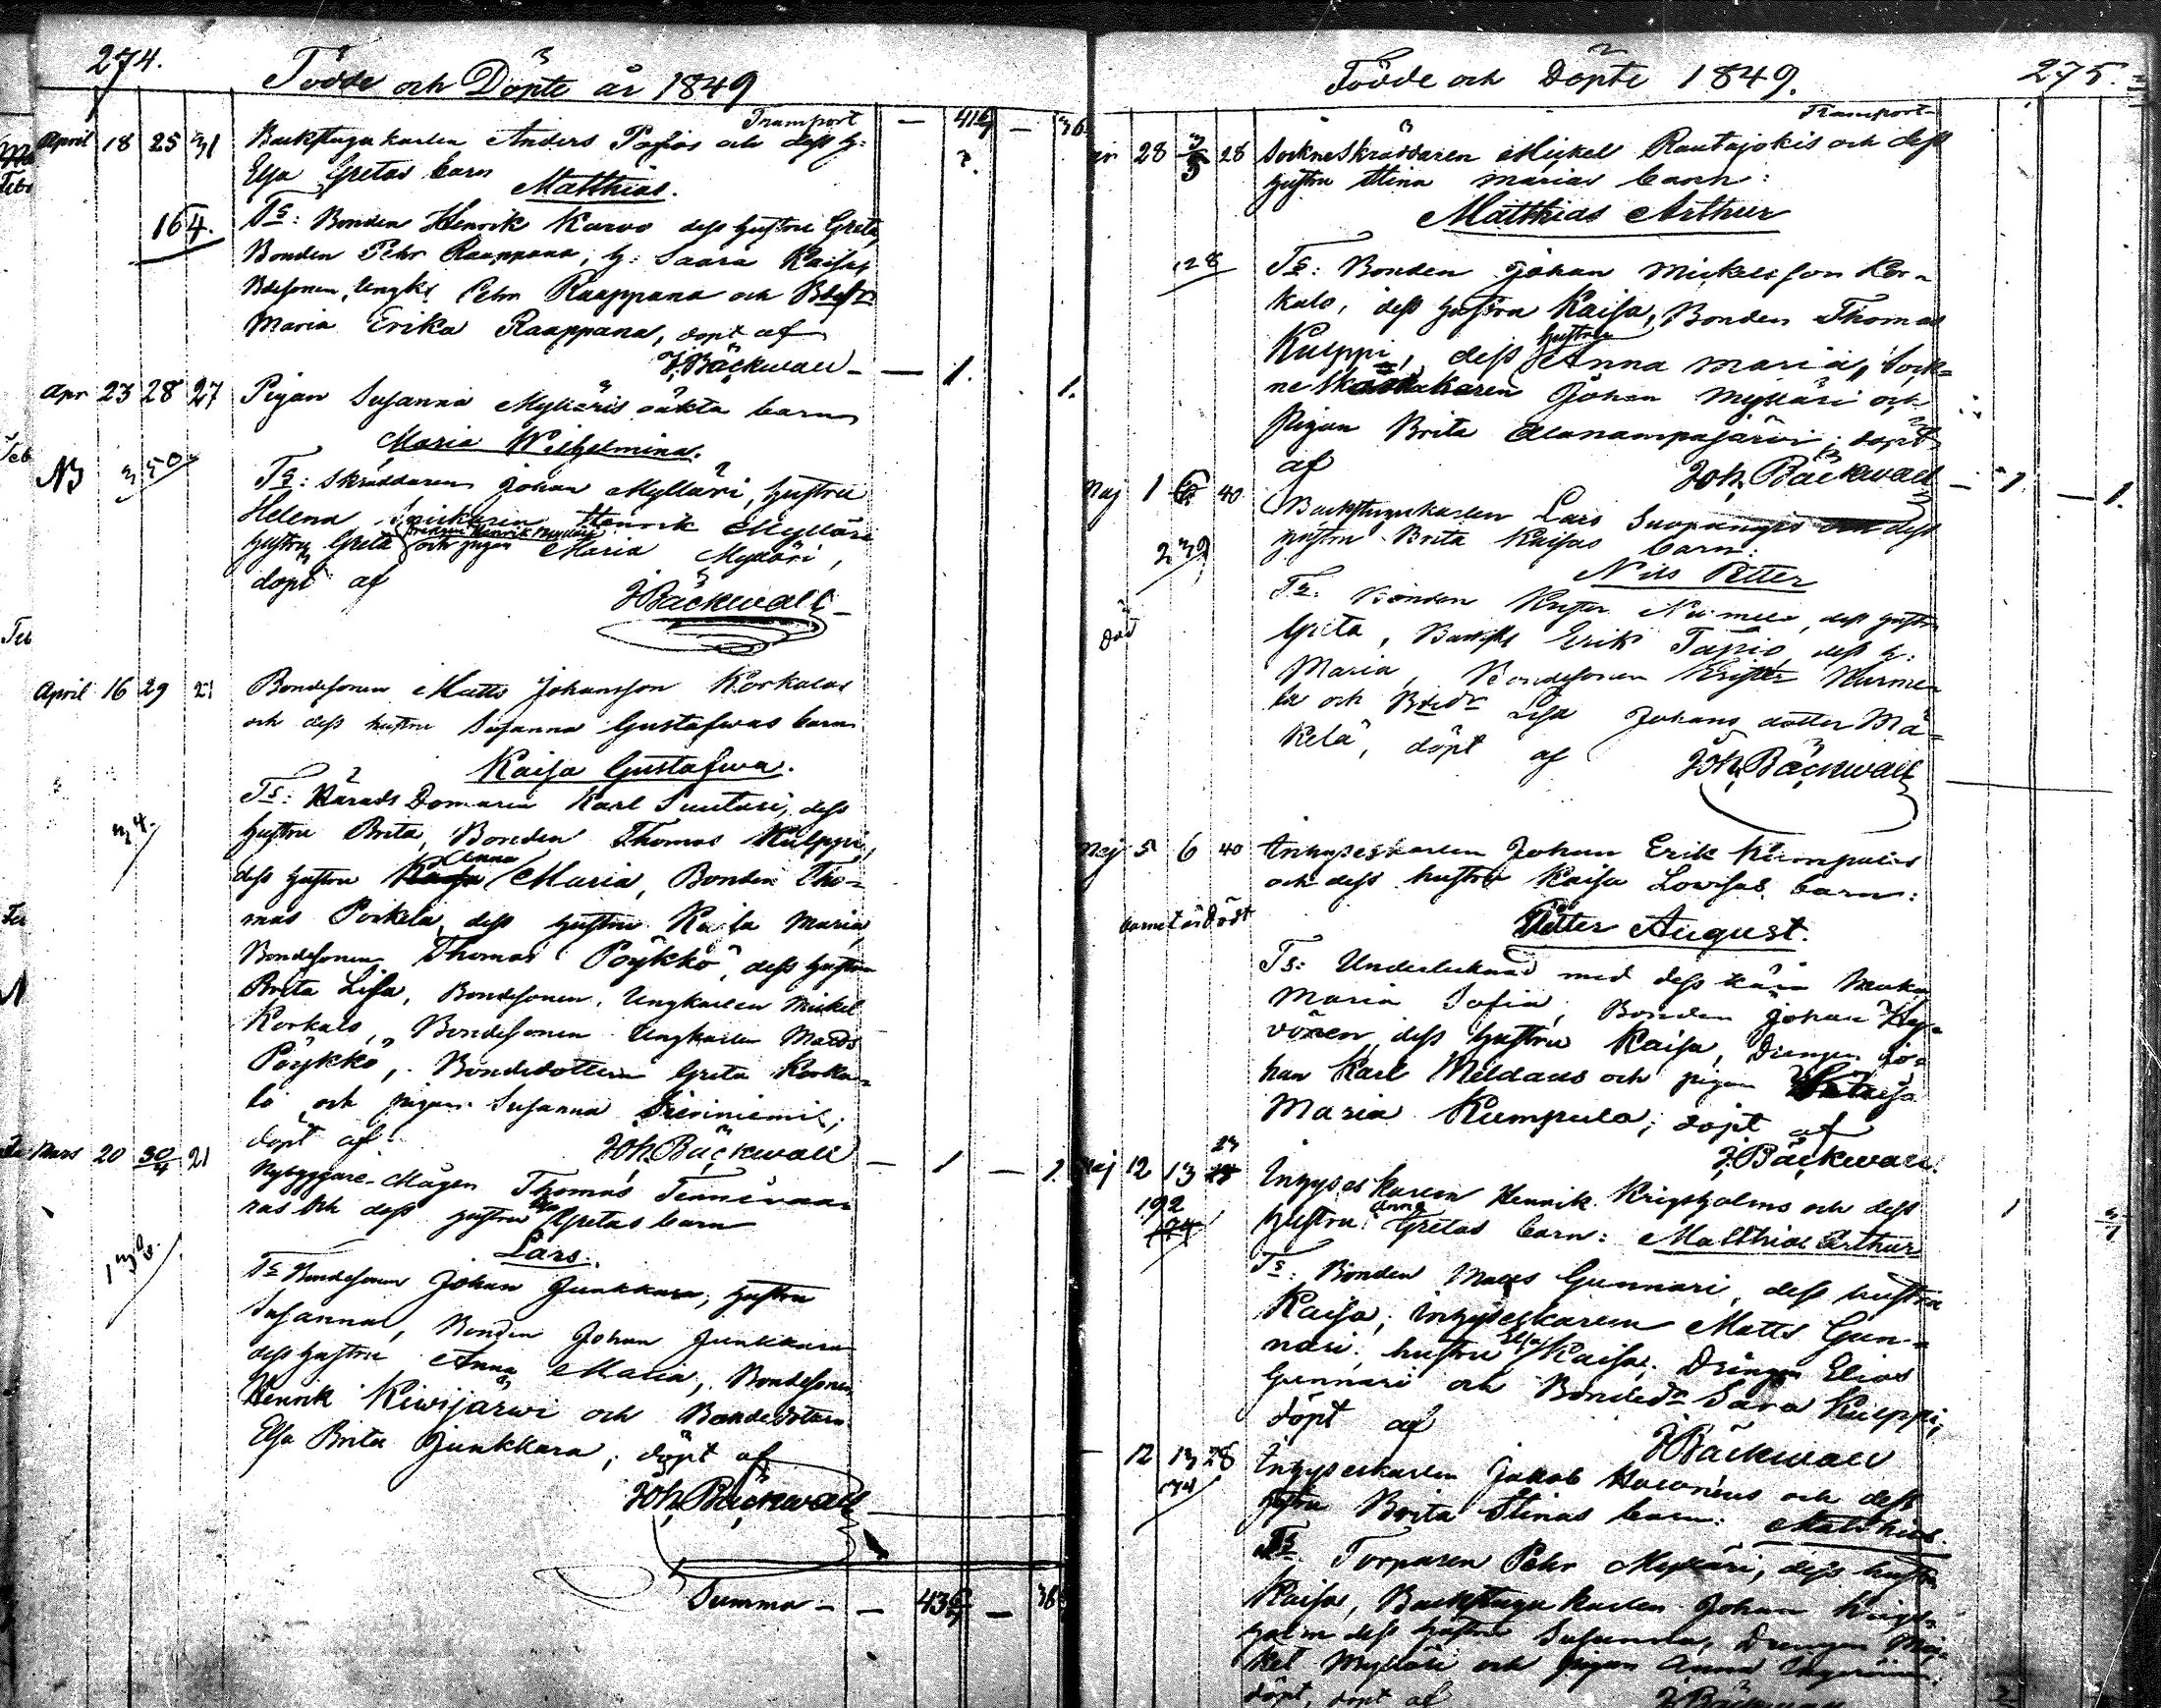 274.
Födde och Döpte år 1849
Transport
April 18 25 31 Backstugukarlen Anders Tapios och dess h:
Elsa Gretas barn
Matthias.
164.
Ts: Bonden Henrik Karvo dess hustru Greta,
Bonden Pehr Raappana, h: Saara Kaisa,
Bdesonen, Ungkl Pehr Raappana och
Maria Erika Raappana, döpt af
J. Bäckwall
Apr 23 28 27 Pigan Susanna Mylläris oäkta barn
Maria Wilhelmina.
NB
Ts: Skräddaren Johan Mylläri, hustru
Helena Henrik Mylläri
hustru Greta och pigan Maria Mylläri,
döpt af
J Bäckwall
April 16 29 21 Bondesonen Matts Johansson Korkalos
och dess hustru Susanna Gustafwas barn
Kaisa Gustafwa.
Ts: Härads Domaren Karl Suutari, dess
hustru Brita, Bonden Thomas Kulppi,
dess hustru Anna Maria, Bonden Tho-
mas Porkela, dess hustru Kaisa Maria,
Bondesonen Thomas Pöykkö, dess hustru
Brita Lisa, Bondesonen, Ungkarlen Mickel
Korkalo, Bondesonen Ungkarlen Mats
Pöykkö, Bondedottern Greta Korka-
lo och pigan Susanna Sieriniemi;
döpt af Joh. Bäckwall
Mars 20 30/4 21 Nybyggare-Mågen Thomas Tennivaa-
ras och dess hustru Gretas barn
Lars.
Ts Bondesonen Johan Junkkara, hustru
Susanna, Bonden Johan Junkkara
dess hustru Anna Maria, Bondesonen
Henrik Kiwijärwi och Bondedottern
Elsa Brita Junkkara; döpt af
Joh. Bäckwall
Summa
Födde och Döpte 1849.
275.
Transport
28 3/5 28 Sockneskräddaren Mickel Rautajokis och dess
hustru Stina Marias barn:
Matthias Arthur
Ts: Bonden Johan Mickelsson Kor-
kalo, dess hustru Kaisa, Bonden Thomas
Kulppi, dess hustru Anna Maria, Sock-
ne Johan Mylläri och
Pigan Brita Alanampajärvi; döpt
af Joh. Bäckwall
Maj 1 6 40 Backstugukarlen Lars Suopangis och dess
hustru Brita Kaisas barn:
Nils Petter
död
Ts: Bonden Krister Nurmela, dess hustru
Greta, Erik Tapio, dess h:
Maria, Bondesonen Krister Nurme-
la och Lisa Johans dotter Mä-
kelä, döpt af Joh. Bäckwall
Maj 5 6 40 Inhyseskarlen Johan Erik Kumpulas
och dess hustru Kaisa Lovisas barn:
barnet är dödt
Petter August.
Ts: Undertecknad med dess kära Maka
Maria Sofia, Bonden Johan
dess hustru Kaisa, Drengen Jo-
han Karl Meldaus och pigan
Maria Kumpula; döpt af
J. Bäckwall.
Maj 12 13 23 Inhyseskarlen Henrik Krigsholms och dess
hustru Anna Gretas barn: Matthias Arthur
192
Ts: Bonden Mats Gunnari, dess hustru
Kaisa; Inhyseskarlen Matts Gun-
nari, hustru Elsa Kaisa; Drengen Elias
Gunnari och Bonded:r Sara Kulppi;
döpt af J Bäckwall
12 13 28 Inhyseskarlen Jakob och dess
hustru Brita Stinas barn: Matthias.
Ts: Torparen Pehr Mylläri, dess hustru
Kaisa, Backstugukarlen Johan Krigs-
holm dess hustru Susanna, Drengen Mic-
kel Mylläri och pigan Anna
döpt, döpt af J Bäckwall